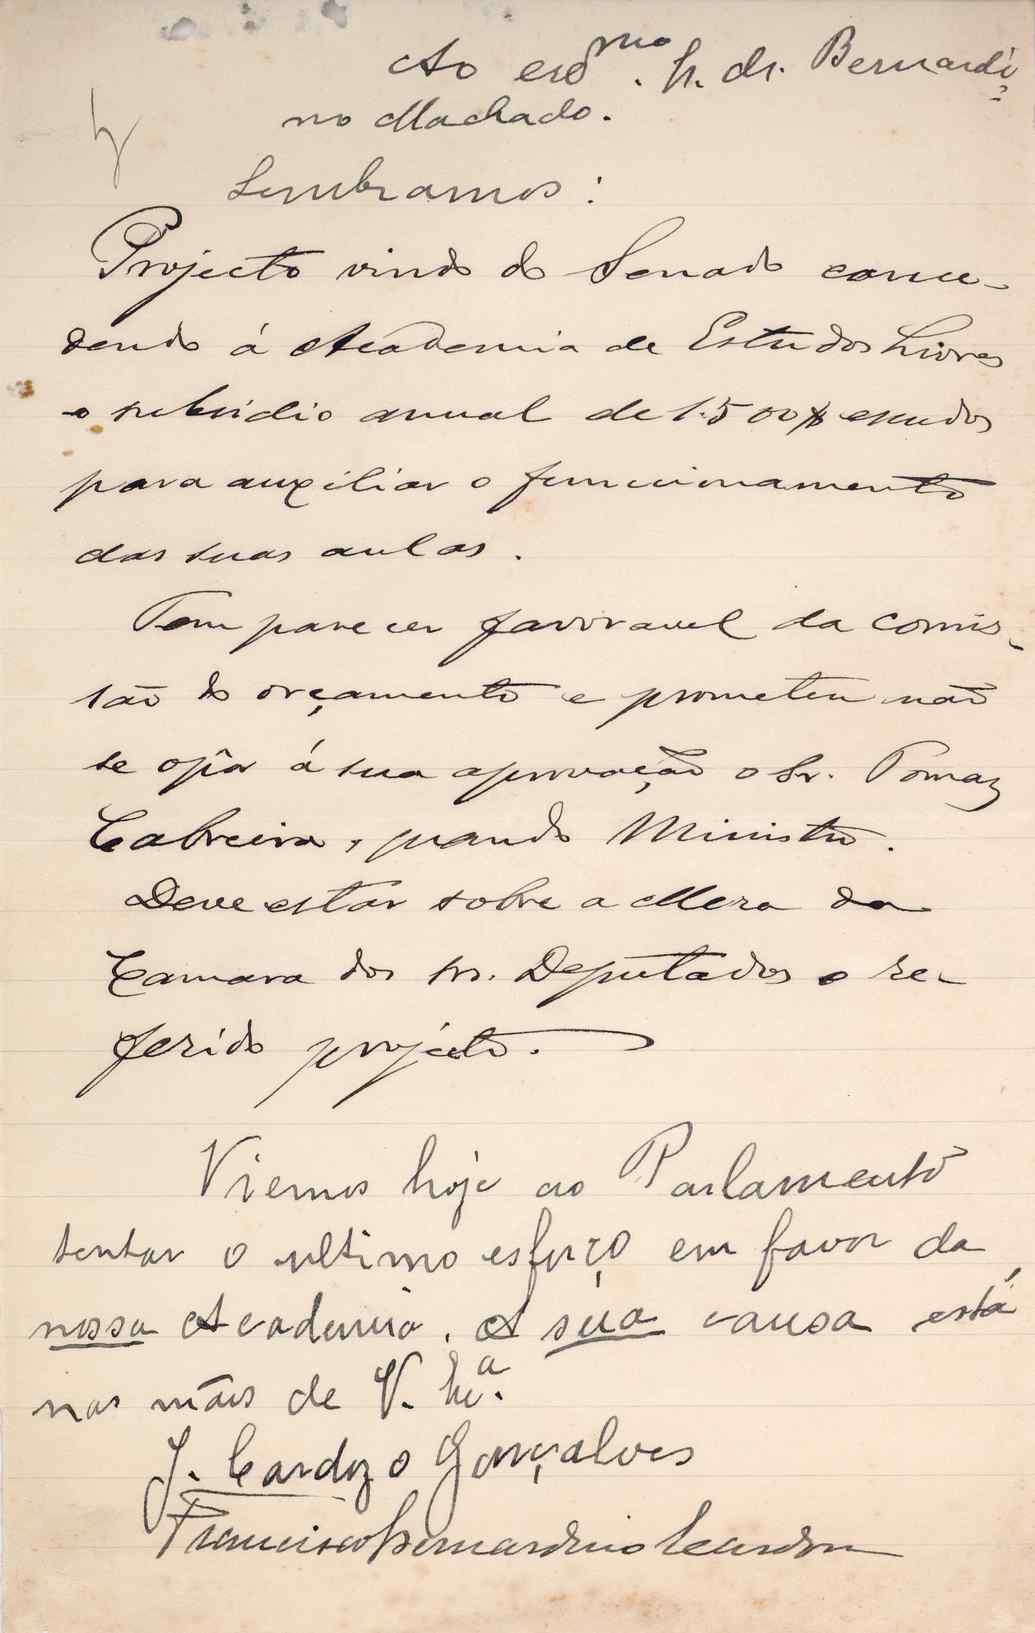 Ao exᵐᵒ. sr. dr. Bernardi-
no Machado.
Lembramos:
Projecto vindo do Senado conce-
dendo á Academia de Estudos Livres
o subsidio anual de 1.500$ escudos
para auxiliar o funcionamento
das suas aulas.
Tem parecer favoravel da comis-
são do orçamento e prometeu não
se opôr á sua aprovação o Sr. Tomaz
Cabreira, quando Ministro.
Deve estar sobre a Meza da
Camara dos srs. Deputados o re-
ferido projécto.
Viemos hoje ao Parlamento
tentar o ultimo esforço em favor da
nossa Academia. A sua causa está
nas mãos de V. Exᵃ.
J. Cardozo Gonçalves
Francisco Bernardino Cardoso